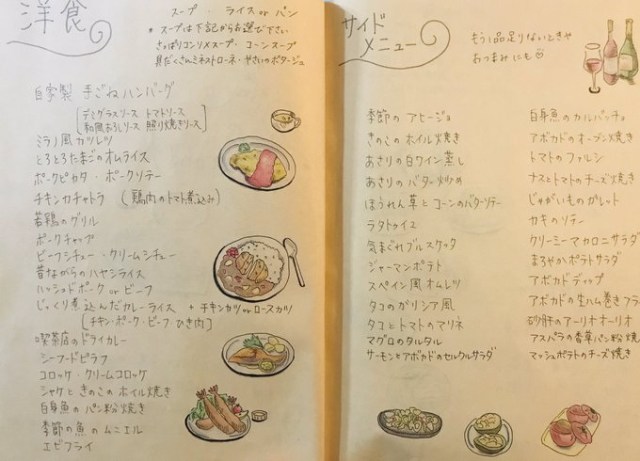 洋食
スープ・ライス or パン
* スープは下記からお選び下さい
さっぱりコンソメスープ・コーンスープ
具だくさんミネストローネ・やさいのポタージュ
自家製 手ごねハンバーグ
[デミグラスソース トマトソース
和風おろしソース 照り焼きソース]
ミラノ風カツレツ
とろとろたまごのオムライス
ポークピカタ・ポークソテー
チキンカチャトラ (鶏肉のトマト煮込み)
若鶏のグリル
ポークチャップ
ビーフシチュー・クリームシチュー
昔ながらのハヤシライス
ハッシュドポーク or ビーフ
じっくり煮込んだカレーライス + チキンカツ or ロースカツ
[チキン・ポーク・ビーフ・ひき肉]
喫茶店のドライカレー
シーフードピラフ
コロッケ・クリームコロッケ
シャケときのこのホイル焼き
白身魚のパン粉焼き
季節の魚のムニエル
エビフライ
サイドメニュー
もう1品足りないときや
おつまみにも
季節のアヒージョ
きのこのホイル焼き
あさりの白ワイン蒸し
あさりのバター炒め
ほうれん草とコーンのバターソテー
ラタトゥイユ
気まぐれブルスケッタ
ジャーマンポテト
スペイン風オムレツ
タコのガリシア風
タコとトマトのマリネ
マグロのタルタル
サーモンとアボカドのセルクルサラダ
白身魚のカルパッチョ
アボカドのオーブン焼き
トマトのファルシ
ナスとトマトのチーズ焼き
じゃがいものガレット
カキのソテー
クリーミーマカロニサラダ
まろやかポテトサラダ
アボカドディップ
アボカドの生ハム巻きフライ
砂肝のアーリオオーリオ
アスパラの香草パン粉焼
マッシュポテトのチーズ焼き